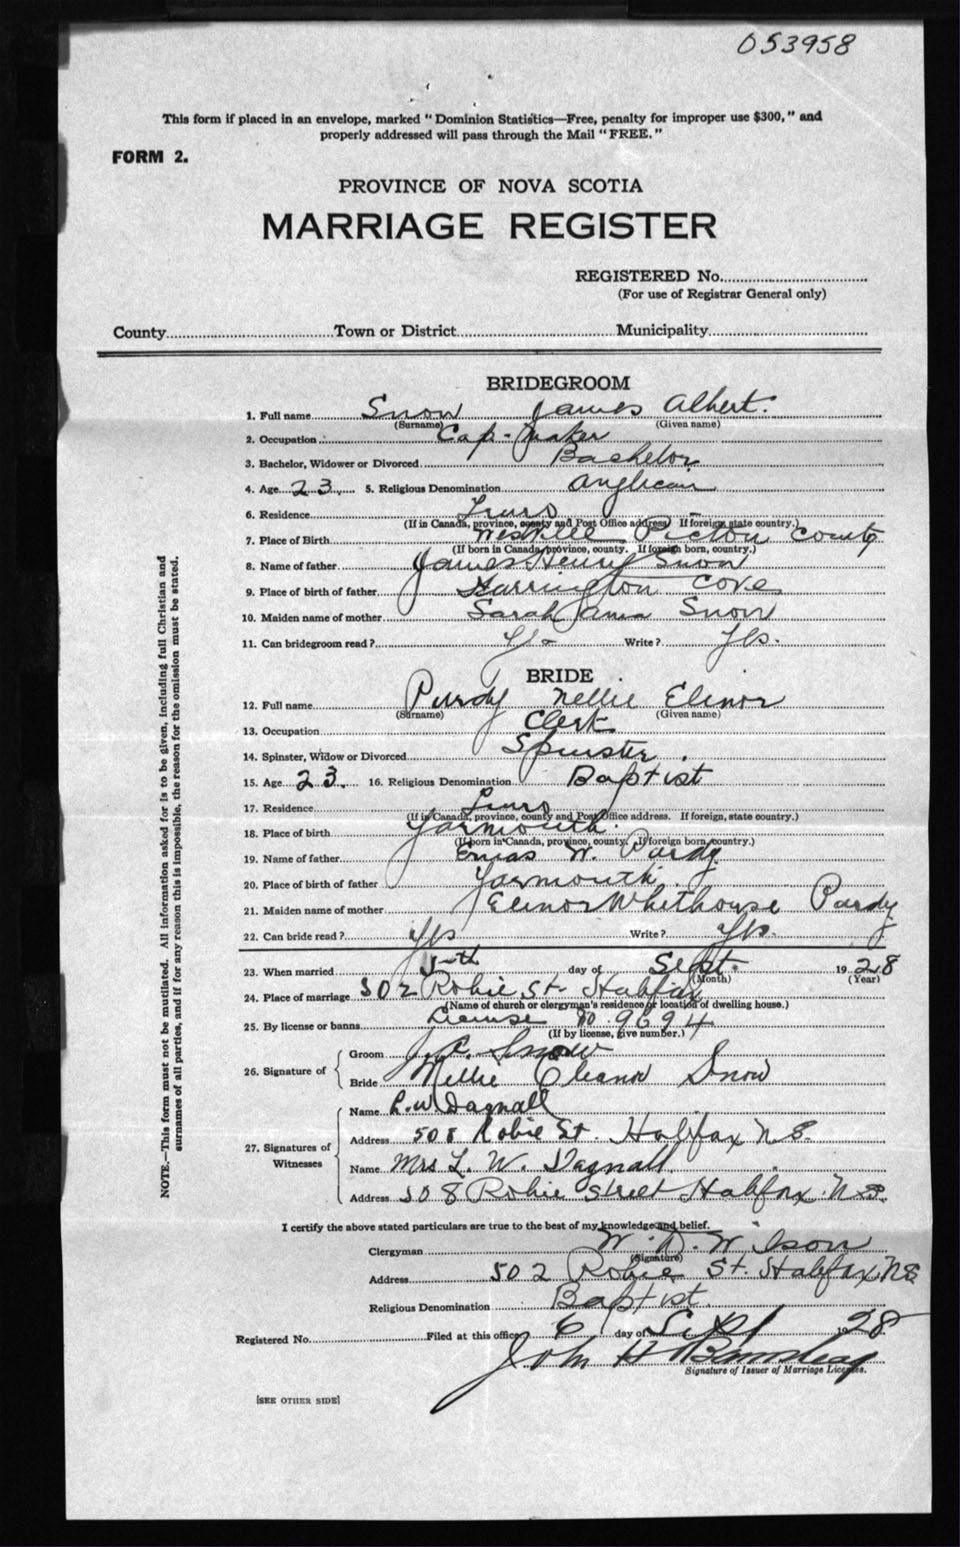 053958
This form if placed in an envelope, marked "Dominion Statistics—Free, penalty for improper use $300," and
properly addressed will pass through the Mail "FREE."
FORM 2.
PROVINCE OF NOVA SCOTIA
MARRIAGE REGISTER
REGISTERED No.
(For use of Registrar General only)
County Town or District Municipality
BRIDEGROOM
1. Full name Snow James Albert.
(Surname) (Given name)
2. Occupation Cap-Maker
3. Bachelor, Widower or Divorced Bachelor
4. Age 23. 5. Religious Denomination Anglican
6. Residence Truro
(If in Canada, province, county and Post Office address) If foreign, state country.)
7. Place of Birth Westville Pictou County
(If born in Canada, province, county. If foreign born, country.)
8. Name of father James Henry Snow
9. Place of birth of father Harrington Cove
10. Maiden name of mother Sarah Snow
11. Can bridegroom read? Yes Write? Yes.
BRIDE
12. Full name Purdy Nellie Elinor
(Surname) (Given name)
13. Occupation Clerk
14. Spinster, Widow or Divorced Spinster.
15. Age 23. 16. Religious Denomination Baptist
17. Residence Truro
(If in Canada, province, county and Post Office address. If foreign, state country.)
18. Place of birth Yarmouth.
(If born in Canada, province, county. If foreign born, country.)
19. Name of father W. Purdy
20. Place of birth of father Yarmouth.
21. Maiden name of mother Elinor Whithouse Purdy
22. Can bride read? Yes Write? Yes.
23. When married 5th day of Sept. 1928
(Month) (Year)
24. Place of marriage 502 Robie St. Halifax
(Name of church or clergyman's residence or location of dwelling house.)
25. By license or banns License No 9694
(If by license, give number.)
26. Signature of
Groom J. A. Snow
Bride Nellie Eleanor Snow
27. Signatures of Witnesses
Name L. W. Dagnall
Address 508 Robie St. Halifax N S.
Name Mrs L. W. Dagnall.
Address 508 Robie Street Halifax. N.S.
I certify the above stated particulars are true to the best of my knowledge and belief.
Clergyman W. D. Wilson
(Signature)
Address 502 Robie St. Halifax. N.S.
Religious Denomination Baptist.
Registered No. Filed at this office 6 day of Sept 1928
John H
Signature of Issuer of Marriage Licenses.
[SEE OTHER SIDE]
NOTE.—This form must not be mutilated. All information asked for is to be given, including full Christian and
surnames of all parties, and if for any reason this is impossible, the reason for the omission must be stated.